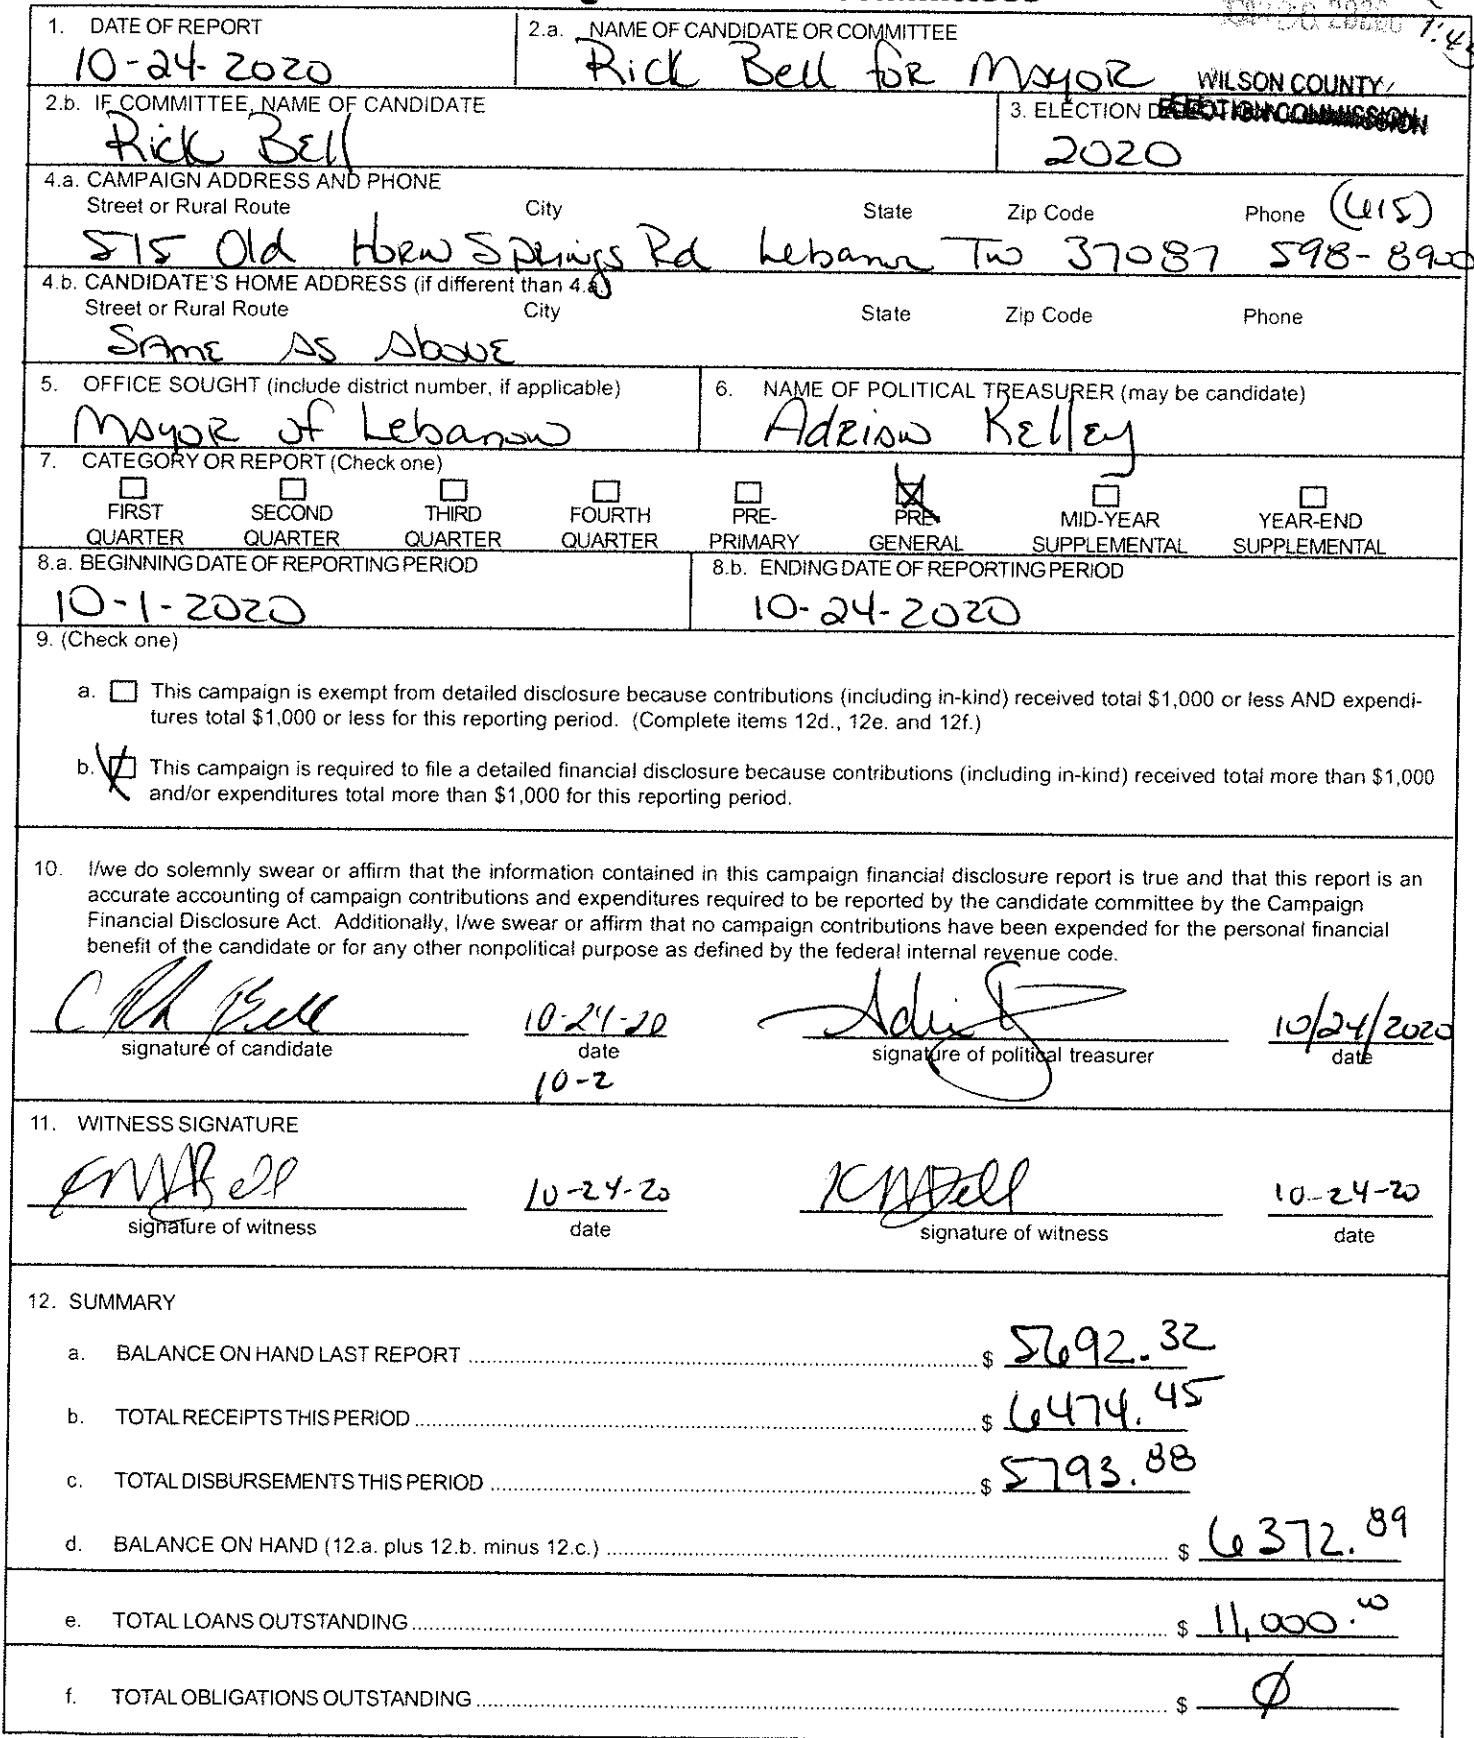 1. DATE OF REPORT
10-24-2020
2.a. NAME OF CANDIDATE OR COMMITTEE
Rick Bell for Mayor
1:4
WILSON COUNTY
ELECTION COMMISSION
2.b. IF COMMITTEE, NAME OF CANDIDATE
Rick Bell
3. ELECTION
2020
4.a. CAMPAIGN ADDRESS AND PHONE
Street or Rural Route City State Zip Code Phone (615)
515 Old Horn Springs Rd Lebanon TN 37087 598-8900
4.b. CANDIDATE'S HOME ADDRESS (if different than 4.a.)
Street or Rural Route City State Zip Code Phone
Same As Above
5. OFFICE SOUGHT (include district number, if applicable)
Mayor of Lebanon
6. NAME OF POLITICAL TREASURER (may be candidate)
Adrion Kelley
7. CATEGORY OR REPORT (Check one)
FIRST SECOND THIRD FOURTH PRE- PRE- MID-YEAR YEAR-END
QUARTER QUARTER QUARTER QUARTER PRIMARY GENERAL SUPPLEMENTAL SUPPLEMENTAL
8.a. BEGINNING DATE OF REPORTING PERIOD
10-1-2020
8.b. ENDING DATE OF REPORTING PERIOD
10-24-2020
9. (Check one)
a. This campaign is exempt from detailed disclosure because contributions (including in-kind) received total $1,000 or less AND expendi-
tures total $1,000 or less for this reporting period. (Complete items 12d., 12e. and 12f.)
b. This campaign is required to file a detailed financial disclosure because contributions (including in-kind) received total more than $1,000
and/or expenditures total more than $1,000 for this reporting period.
10. I/we do solemnly swear or affirm that the information contained in this campaign financial disclosure report is true and that this report is an
accurate accounting of campaign contributions and expenditures required to be reported by the candidate committee by the Campaign
Financial Disclosure Act. Additionally, I/we swear or affirm that no campaign contributions have been expended for the personal financial
benefit of the candidate or for any other nonpolitical purpose as defined by the federal internal revenue code.
10-24-20 10/24/2020
signature of candidate date signature of political treasurer date
10-2
11. WITNESS SIGNATURE
KMBell 10-24-20 KMBell 10-24-20
signature of witness date signature of witness date
12. SUMMARY
a. BALANCE ON HAND LAST REPORT $ 5692.32
b. TOTAL RECEIPTS THIS PERIOD $ 6474.45
c. TOTAL DISBURSEMENTS THIS PERIOD $ 5793.88
d. BALANCE ON HAND (12.a. plus 12.b. minus 12.c.) $ 6372.89
e. TOTAL LOANS OUTSTANDING $ 11,000.00
f. TOTAL OBLIGATIONS OUTSTANDING $ Ø